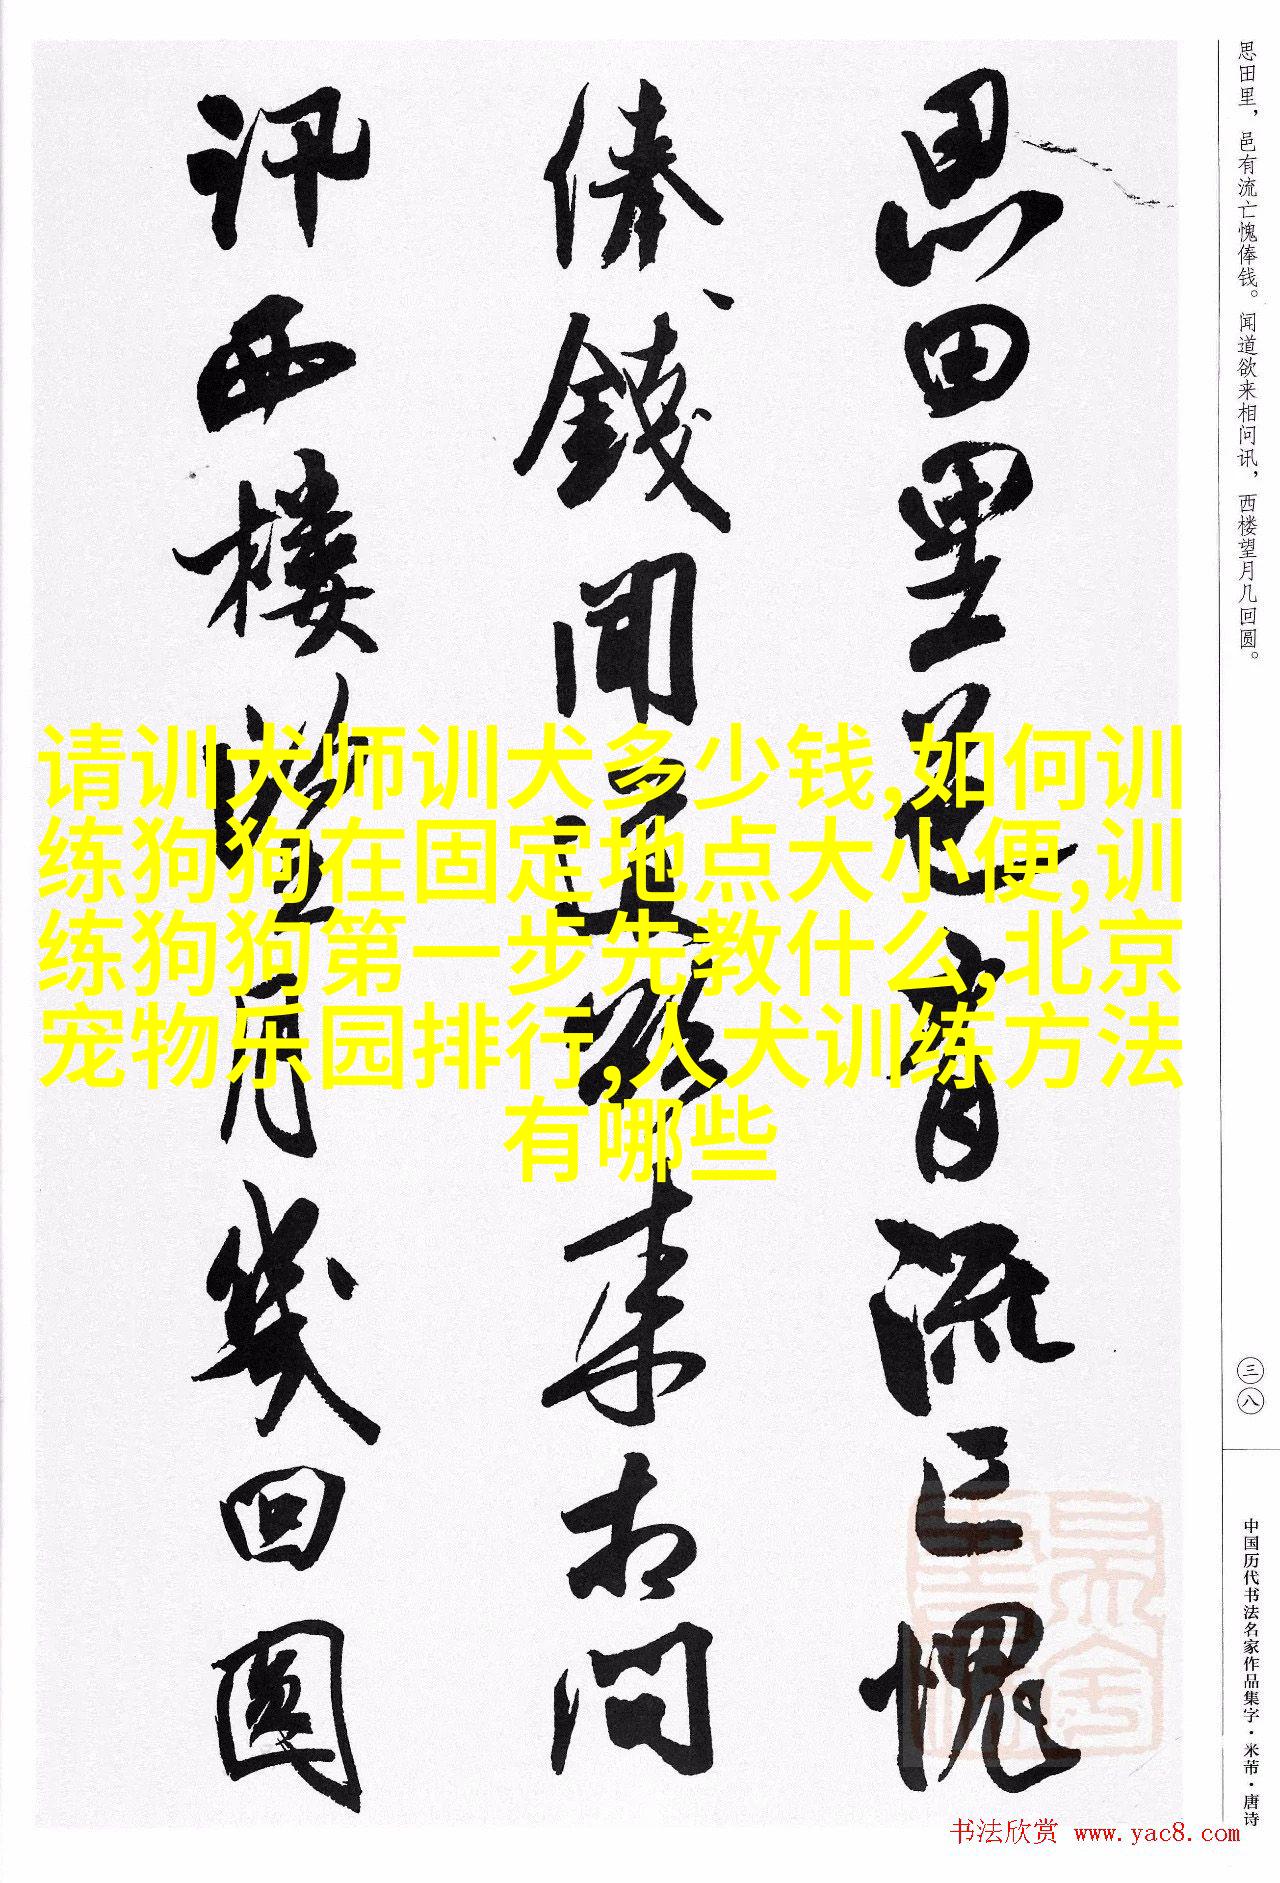 思田里邑有流亡愧
俸钱闻道欲来相问
讯西楼望月几回圆
思田里，邑有流亡愧俸钱。闻道欲来相问讯，西楼望月几回圆。
三八
中国历代书法名家作品集字·米芾·唐诗
请训犬师训犬多少钱,如何训
练狗狗在固定地点大小便,训
练狗狗第一步先教什么,北京
宠物乐园排行,人犬训练方法
有哪些
书法欣赏 www.yac8.com